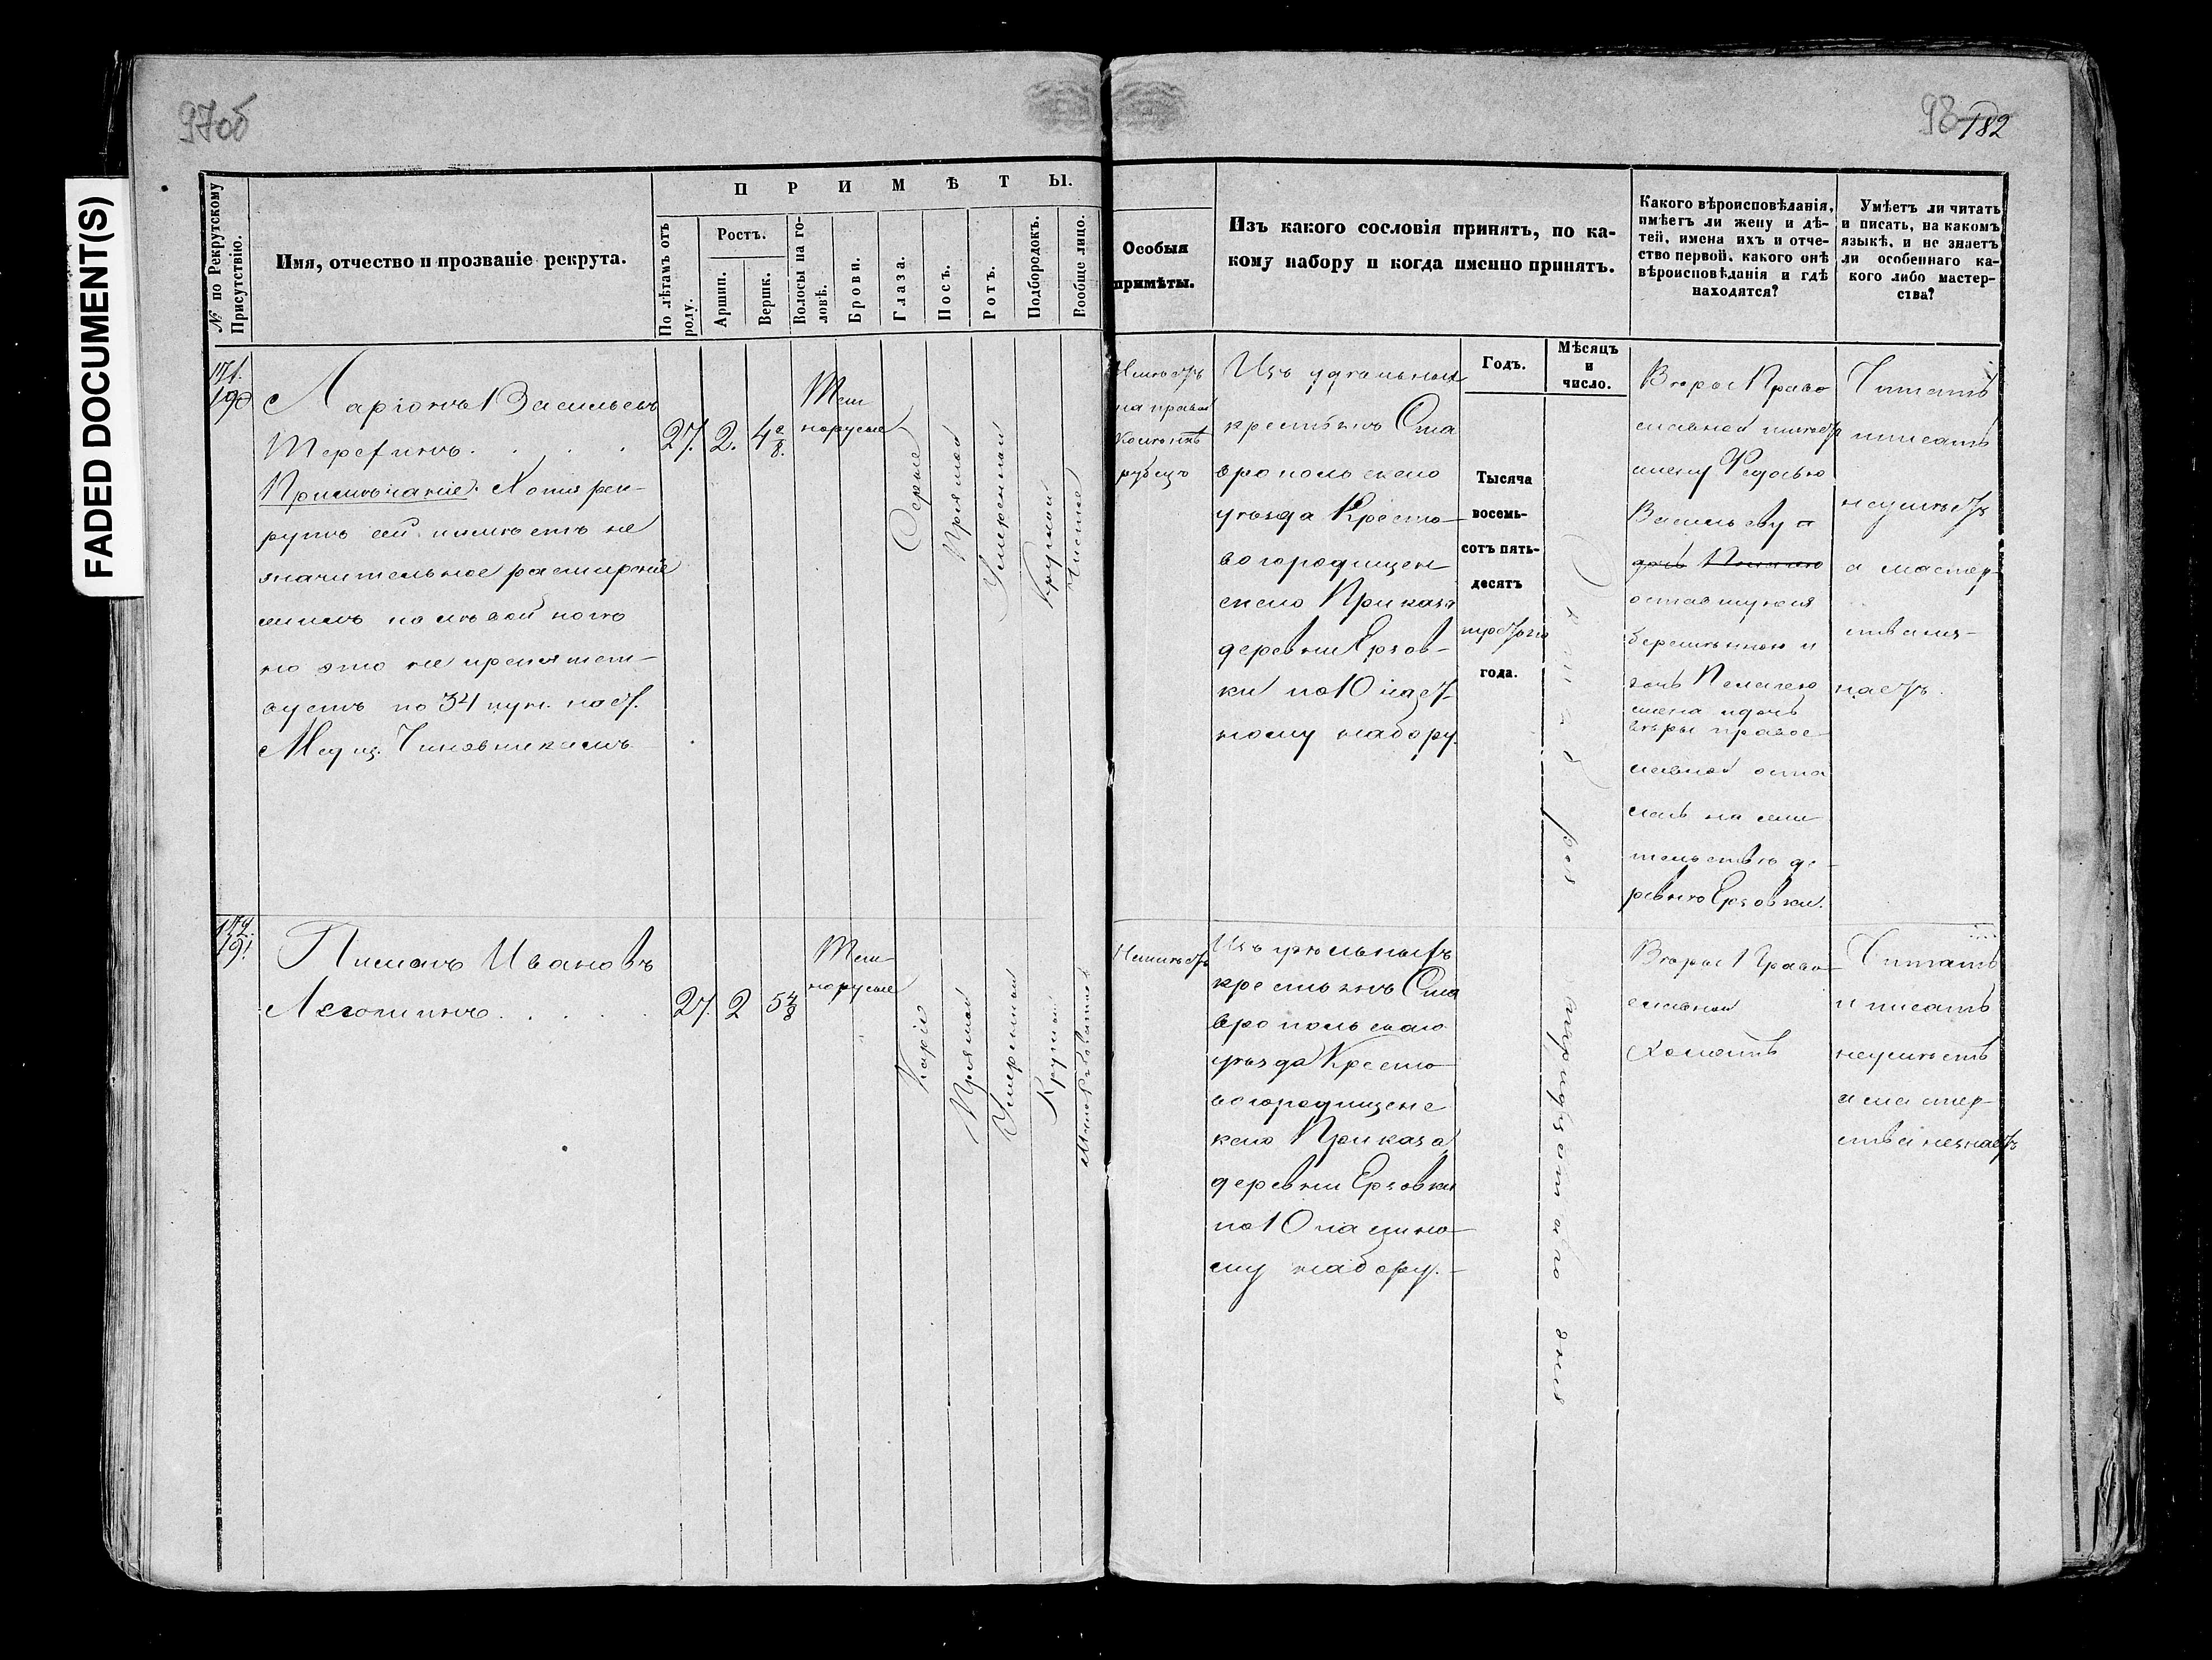 97об
98 182
FADED DOCUMENT(S)
№ по Рекрутскому Присутствію.
Имя, отчество и прозваніе рекрута.
ПРИМѢТЫ.
По лѣтамъ отъ роду.
Ростъ.
Аршин.
Вершк.
Волосы на головѣ.
Брови.
Глаза.
Носъ.
Ротъ.
Подбородокъ.
Вообще лицо.
Особыя
примѣты.
Изъ какого сословія принятъ, по ка-
кому набору и когда именно принятъ.
Какого вѣроисповѣданія,
имѣетъ ли жену и дѣ-
тей, имена ихъ и отче-
ство первой, какого онѣ
вѣроисповѣданія и гдѣ
находятся?
Умѣетъ ли читать
и писать, на какомъ
языкѣ, и не знаетъ
ли особеннаго ка-
кого либо мастер-
ства?
Годъ.
Мѣсяцъ
и
число.
171.
190
Ларіонъ Васильевъ
Терефинъ
Примѣчаніе. Хотя рек-
рутъ сей имѣетъ не
значительное расширеніе
жилъ на лѣвой ногѣ
но это не препятст-
вуетъ по 34 пун. наст.
Медиц. Чиновникамъ
27. 2. 4 2/8.
Тем
норусые
Серые
Прямой
Умеренный
Круглый
Чистое
Имѣетъ
на правой
рубецъ
Изъ удельныхъ
крестьянъ Ста
вропольскаго
уѣзда Кресто-
вогородищен
скаго Приказа
деревни Ерзов-
ки по 10 част-
ному набору.
Тысяча
восемь-
сотъ пять-
десятъ
третьяго
года.
Октября
тридцатаго дня
Вѣры Право
славной имѣетъ
жену Федосью
Васильеву и
дочь
оставшуюся
беременною и
дочь Пелагею
жена и дочь
вѣры правос
лавной оста
лась на жи
тельствѣ де-
ревнѣ Ерзовки.
Читать
и писать
неумѣетъ
а мастер-
ства нез-
наетъ.
172.
191
Пименъ Ивановъ
27. 2 5 4/8
Тем-
норусые
Каріе
Прямой
Умеренный
Круглый
Неимѣетъ
Изъ удѣльныхъ
крестьянъ Ста
вропольскаго
уѣзда Кресто
вогородищенс
каго Приказа
деревни Ерзовки
по 10 частно-
му набору.
Вѣры Право-
славной
Холостъ
Читать
и писать
неумѣетъ
а мастер-
ства незнаетъ